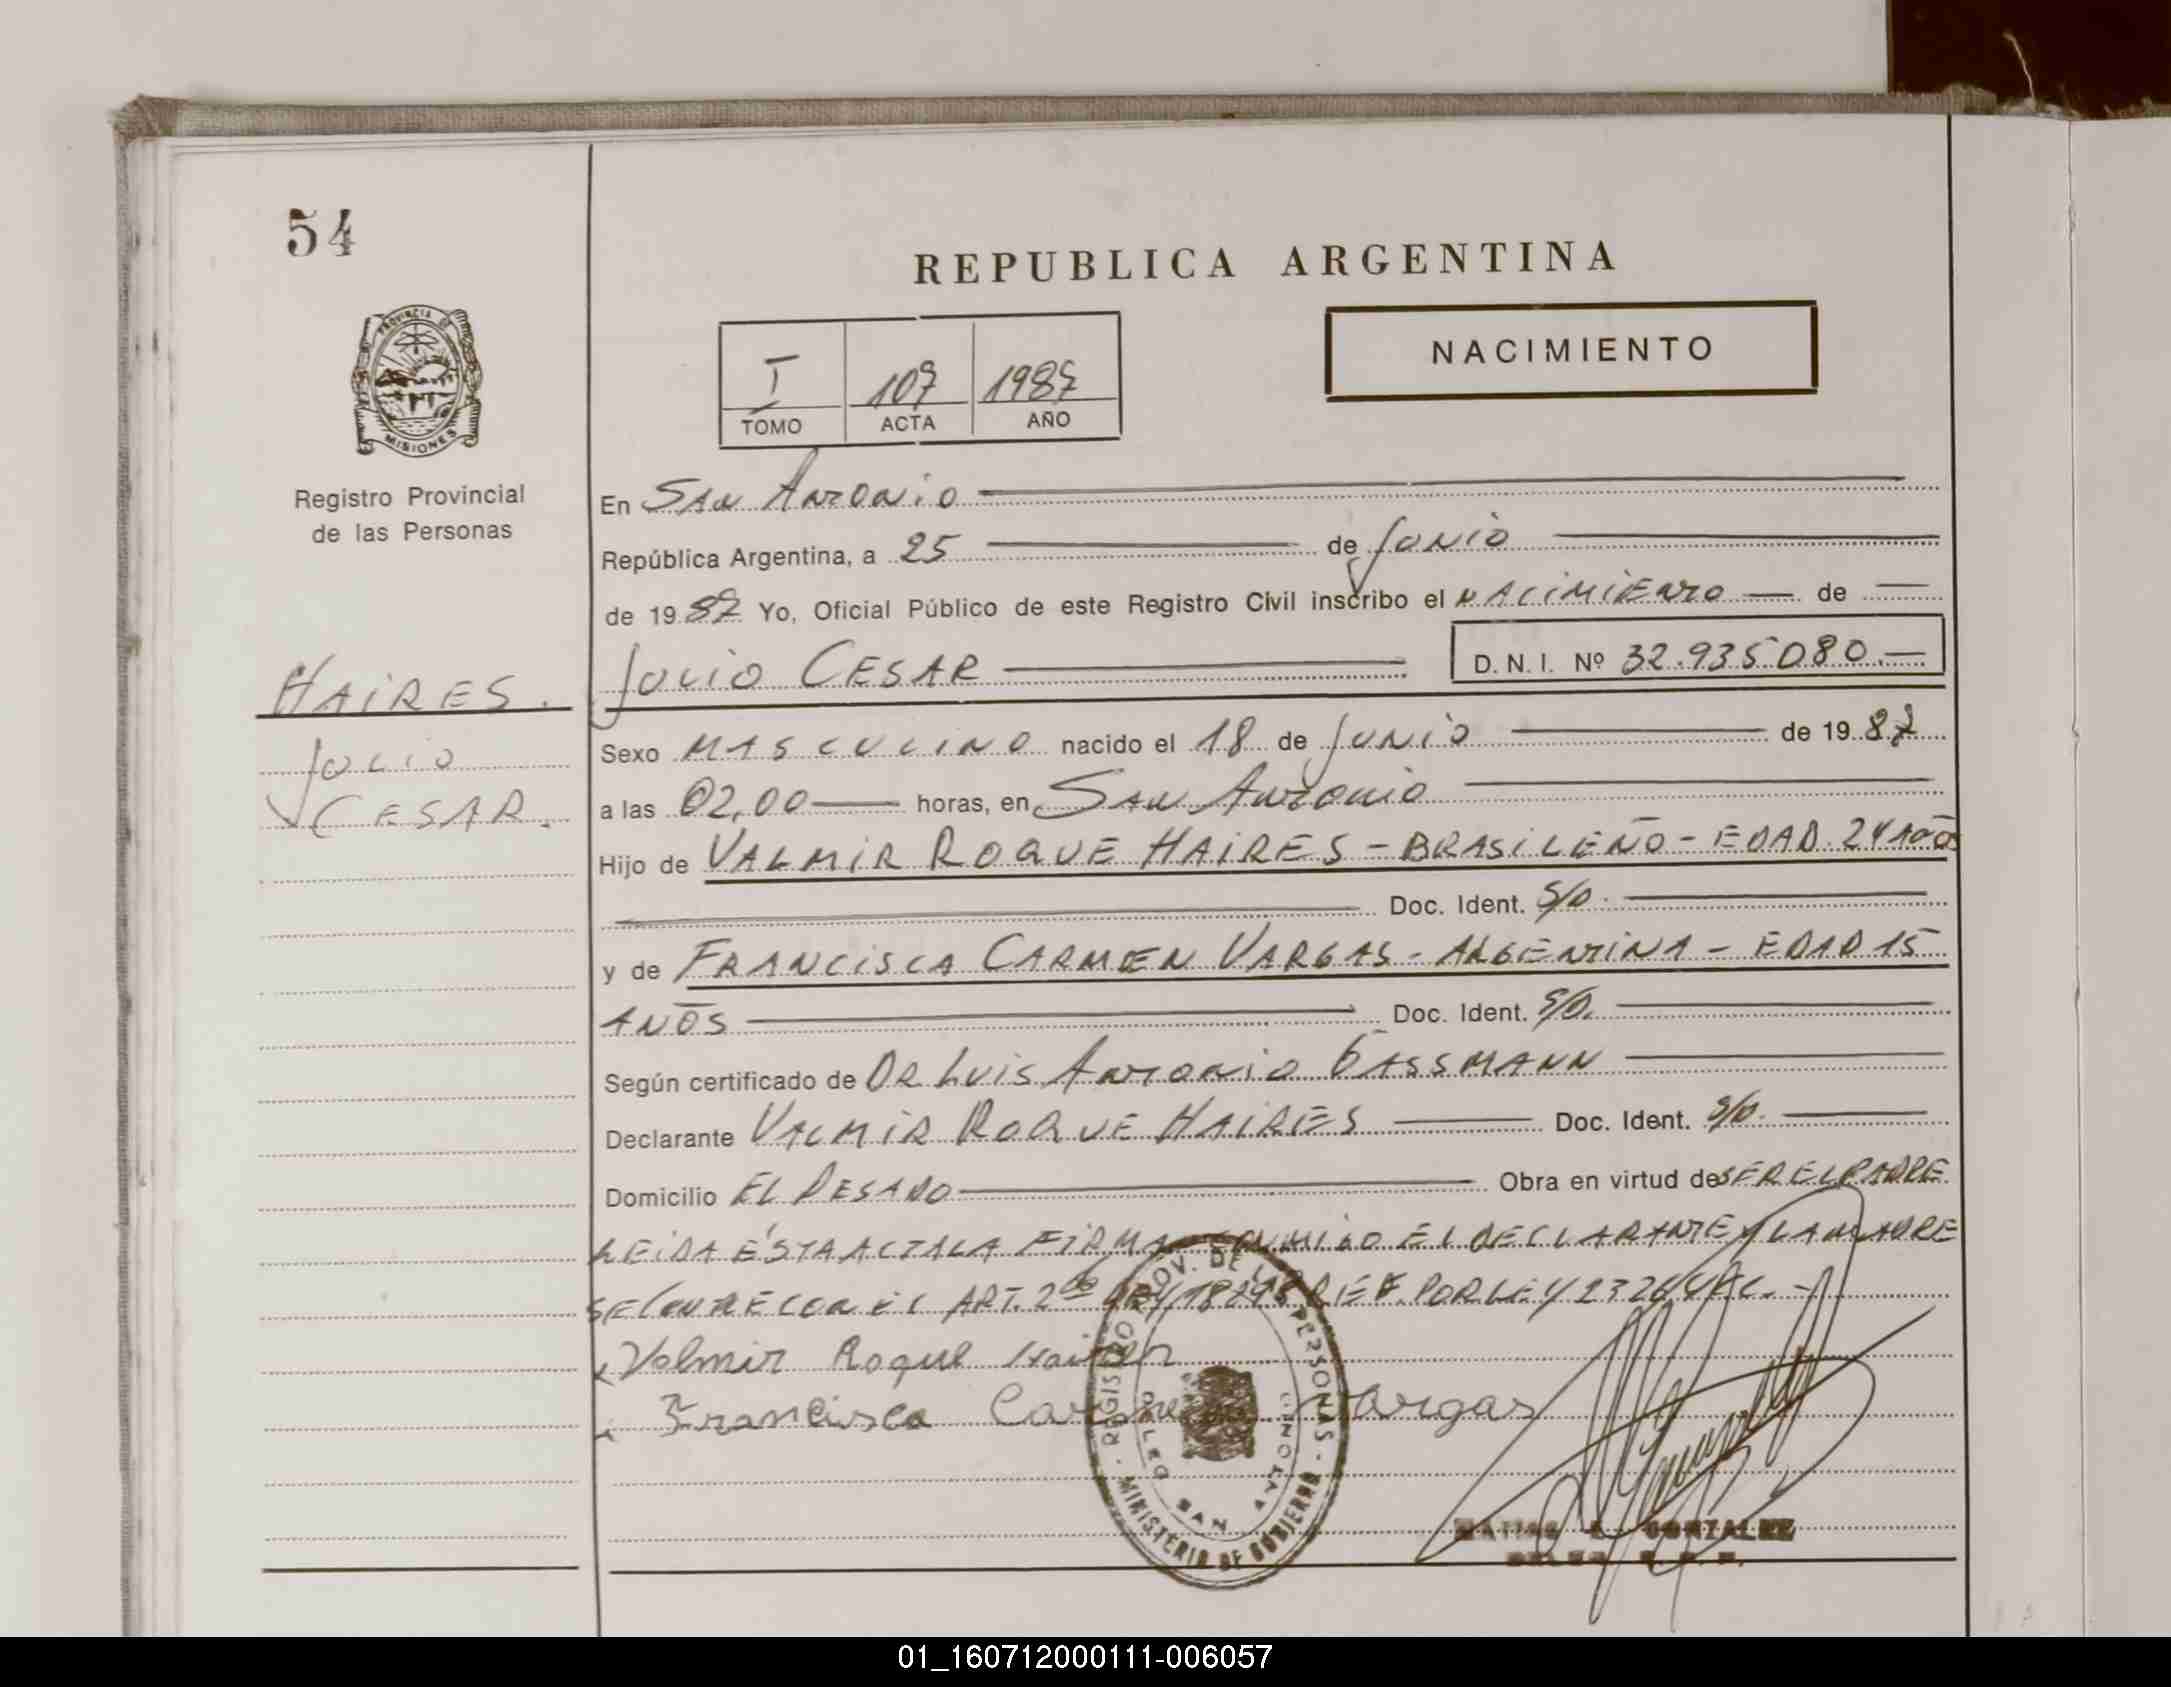 54
REPUBLICA ARGENTINA
NACIMIENTO
PROVINCIA DE
MISIONES
I 107 1987
TOMO ACTA AÑO
Registro Provincial
de las Personas
En SAN ANTONIO
República Argentina, a 25 de JUNIO
de 19 87 Yo, Oficial Público de este Registro Civil inscribo el NACIMIENTO de
JULIO CESAR D.N.I. Nº 32.935.080.-
HAIRES.
JULIO
CESAR.
Sexo MASCULINO nacido el 18 de JUNIO de 19 87
a las 02,00 horas, en SAN ANTONIO
Hijo de VALMIR ROQUE HAIRES - BRASILEÑO - EDAD 24 AÑOS
Doc. Ident. S/D.
y de FRANCISCA CARMEN VARGAS - ARGENTINA - EDAD 15
AÑOS Doc. Ident. S/D.
Según certificado de DR LUIS ANTONIO GASSMANN
Declarante VALMIR ROQUE HAIRES Doc. Ident. S/D.
Domicilio EL DESANO Obra en virtud de SER EL PADRE
LEIDA ÉSTA ACTA LA FIRMA CONMIGO EL DECLARANTE Y LA MADRE
ART. 2do LEY 18248 POR LEY 23264
Valmir Roque Haires
Francisca Carmen Vargas
REGISTRO PROV. DE LAS PERSONAS - MINISTERIO DE GOBIERNO
DELEG SAN ANTONIO
GONZALEZ
01_160712000111-006057